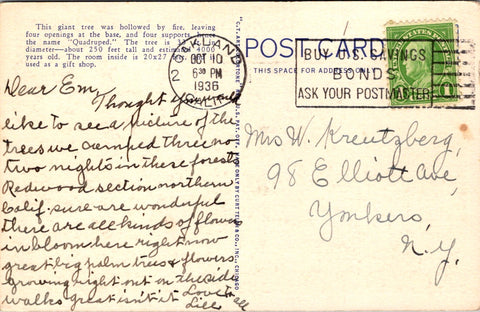 This giant tree was hollowed by fire, leaving
four openings at the base, and four supports, hence
the name "Quadruped." The tree is 
diameter—about 250 feet tall and estimated 4000
years old. The room inside is 20x27
used as a gift shop.
OAKLAND
OCT 10
6 30 PM
1936
CALIF.
2
POST CARD
THIS SPACE FOR ADDRESS ON
BUY U.S. SAVINGS
BONDS
ASK YOUR POSTMASTER
Dear Em,
Thought you would
like to see a picture of the
trees we camped three nor
two nights in these forests
Redwood section northern
Calif. sure are wonderful
there are all kinds of flowers
in bloom here right now
great big palm trees & flowers
growing right out on the side
walks great isn't it Love to all
Lill
Mrs W. Kreutzberg,
98 Elliott ave,
Yonkers,
N.Y.